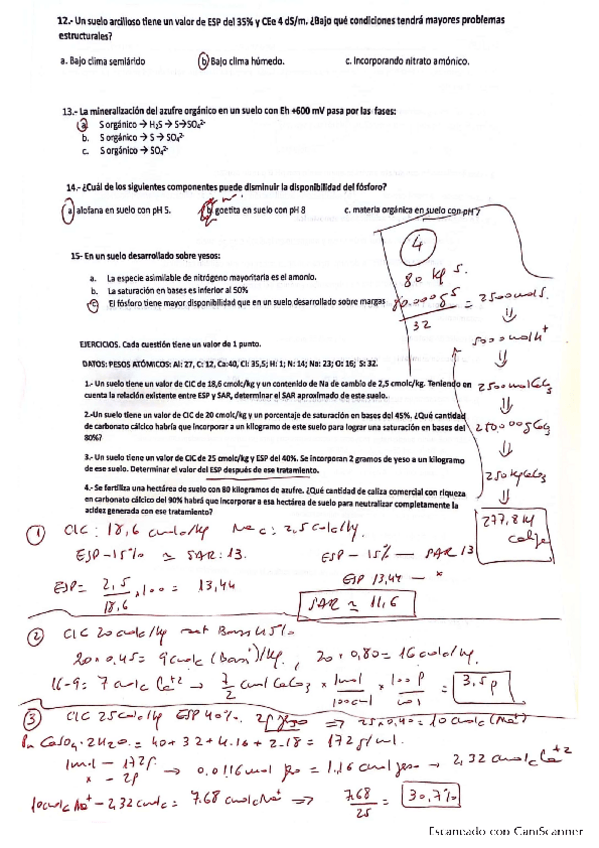 12.- Un suelo arcilloso tiene un valor de ESP del 35% y CEe 4 dS/m. ¿Bajo qué condiciones tendrá mayores problemas
estructurales?
a. Bajo clima semiárido b) Bajo clima húmedo. c. Incorporando nitrato amónico.
13.- La mineralización del azufre orgánico en un suelo con Eh +600 mV pasa por las fases:
a S orgánico → H₂S → S→SO₄²⁻
b. S orgánico → S → SO₄²⁻
c. S orgánico → SO₄²⁻
14.- ¿Cuál de los siguientes componentes puede disminuir la disponibilidad del fósforo?
a) alofana en suelo con pH 5. b goetita en suelo con pH 8 c. materia orgánica en suelo con pH 7
15- En un suelo desarrollado sobre yesos:
a. La especie asimilable de nitrógeno mayoritaria es el amonio.
b. La saturación en bases es inferior al 50%
c El fósforo tiene mayor disponibilidad que en un suelo desarrollado sobre margas
4
80 kg S.
80.000 g S
32
= 2500 mol S.
⇓
5000 mol H⁺
⇓
2500 mol CaCO₃
⇓
250.000 g CaCO₃
⇓
250 kg CaCO₃
⇓
277,8 kg
caliza
EJERCICIOS. Cada cuestión tiene un valor de 1 punto.
DATOS: PESOS ATÓMICOS: Al: 27, C: 12, Ca:40, Cl: 35,5; H: 1; N: 14; Na: 23; O: 16; S: 32.
1.- Un suelo tiene un valor de CIC de 18,6 cmolc/kg y un contenido de Na de cambio de 2,5 cmolc/kg. Teniendo en
cuenta la relación existente entre ESP y SAR, determinar el SAR aproximado de este suelo.
2.-Un suelo tiene un valor de CIC de 20 cmolc/kg y un porcentaje de saturación en bases del 45%. ¿Qué cantidad
de carbonato cálcico habría que incorporar a un kilogramo de este suelo para lograr una saturación en bases del
80%?
3.- Un suelo tiene un valor de CIC de 25 cmolc/kg y ESP del 40%. Se incorporan 2 gramos de yeso a un kilogramo
de ese suelo. Determinar el valor del ESP después de ese tratamiento.
4.- Se fertiliza una hectárea de suelo con 80 kilogramos de azufre. ¿Qué cantidad de caliza comercial con riqueza
en carbonato cálcico del 90% habrá que incorporar a esa hectárea de suelo para neutralizar completamente la
acidez generada con ese tratamiento?
1 CIC: 18,6 cmolc/kg Na c: 2,5 cmolc/kg.
ESP-15% ≃ SAR: 13. ESP - 15% — SAR 13
ESP = 2,5 / 18,6 . 100 = 13,44 ESP 13,44 — x
SAR ≃ 11,6
2 CIC 20 cmolc/kg sat Bases 45%
20 * 0,45 = 9 cmolc (Bases)/kg, 20 * 0,80 = 16 cmolc/kg
16-9 = 7 cmolc Ca⁺² → 7/2 cmol CaCO₃ * 1mol/100cmol * 100 g/mol = 3,5 g
3 CIC 25 cmolc/kg ESP 40%. 2g yeso ⇒ 25 x 0,40 = 10 cmolc (Na⁺)
Pm CaSO₄·2H₂O = 40 + 32 + 4·16 + 2·18 = 172 g/mol.
1mol - 172 g.
x - 2g → 0.0116 mol yeso = 1,16 cmol yeso → 2,32 cmolc Ca⁺²
10 cmolc Na⁺ - 2,32 cmolc = 7,68 cmolc Na⁺ ⇒ 7,68 / 25 = 30,7%
Escaneado con CamScanner